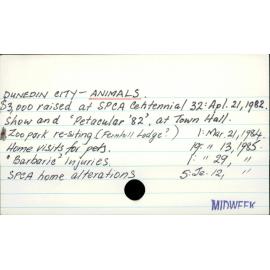 DUNEDIN CITY - ANIMALS.
$3,000 raised at SPCA Centennial 32: Apl. 21, 1982.
Show and 'Petacular '82', at Town Hall.
Zoo park re-siting (Fernhill Lodge?) 1: Mar. 21, 1984.
Home visits for pets. 19: " 13, 1985.
"Barbaric" Injuries. 1: " 29, "
SPCA home alterations 5: Je. 12, "
MIDWEEK